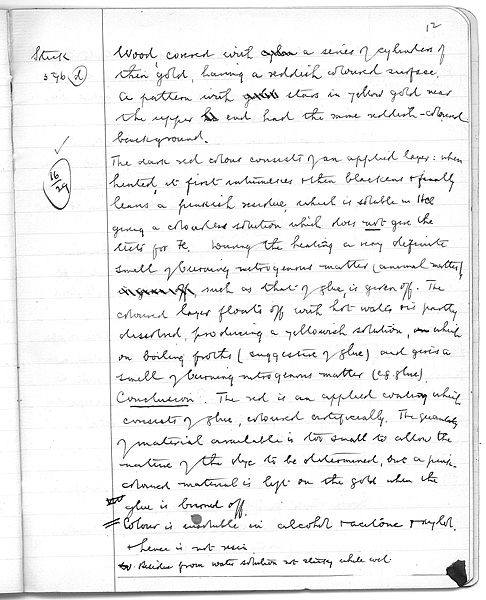 12
Stick
596 (d)
16/29
Wood, covered with a series of cylinders of
thin gold, having a reddish coloured surface.
A pattern with stars in yellow gold near
the upper end had the same reddish-coloured
background.
The dark red colour consists of an applied layer: when
heated, it first intumesces & then blackens & finally
leaves a pinkish residue, which is soluble in HCl
giving a colourless solution which does not give the
tests for Fe. During the heating a very definite
smell of burning nitrogenous matter (animal matter)
such as that of glue, is given off. The
coloured layer floats off with hot water & is partly
dissolved, producing a yellowish solution, which
on boiling froths (suggestive of glue) and gives a
smell of burning nitrogenous matter (e.g. glue).
Conclusion. The red is an applied coating which
consists of glue, coloured artificially. The quantity
of material available is too small to allow the
nature of the dye to be determined, but a pink-
coloured material is left on the gold when the
glue is burned off.
Colour is insoluble in alcohol & acetone & xylol.
& hence is not resin.
Residue from water solution not sticky while wet.